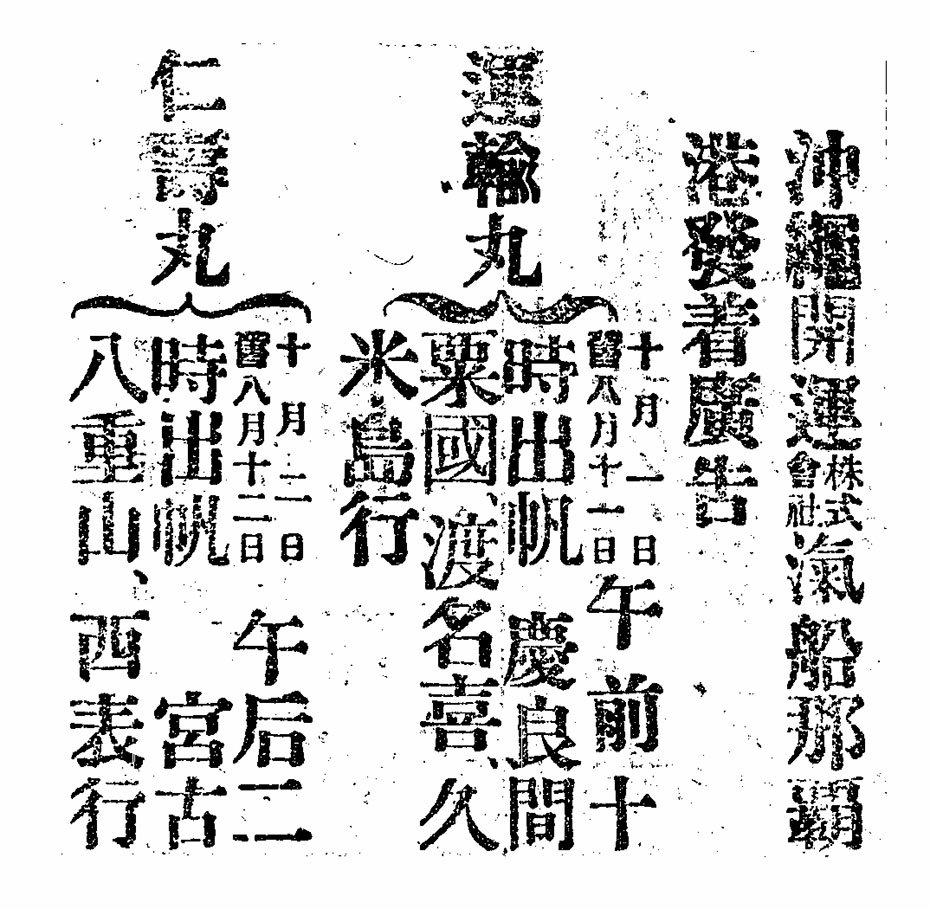 沖繩開運株式會社滊船那覇
港發着廣告
運輸丸
十月一日
舊八月十一日
午前十
時出帆 慶良間
粟國、渡名喜、久
米島行
仁壽丸
十月二日
舊八月十二日
午后二
時出帆 宮古
八重山、西表行